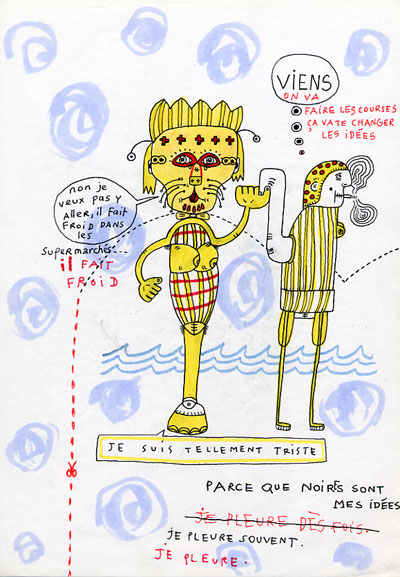 VIENS
ON VA
FAIRE LES COURSES
ÇA VA TE CHANGER
LES IDÉES
non je
veux pas y
aller, il fait
FROID DANS
les
supermarchés...
il FAIT
FROID
JE SUIS TELLEMENT TRISTE
PARCE QUE NOIRES SONT
MES IDÉES
JE PLEURE DÈS FOIS.
JE PLEURE SOUVENT.
JE PLEURE.